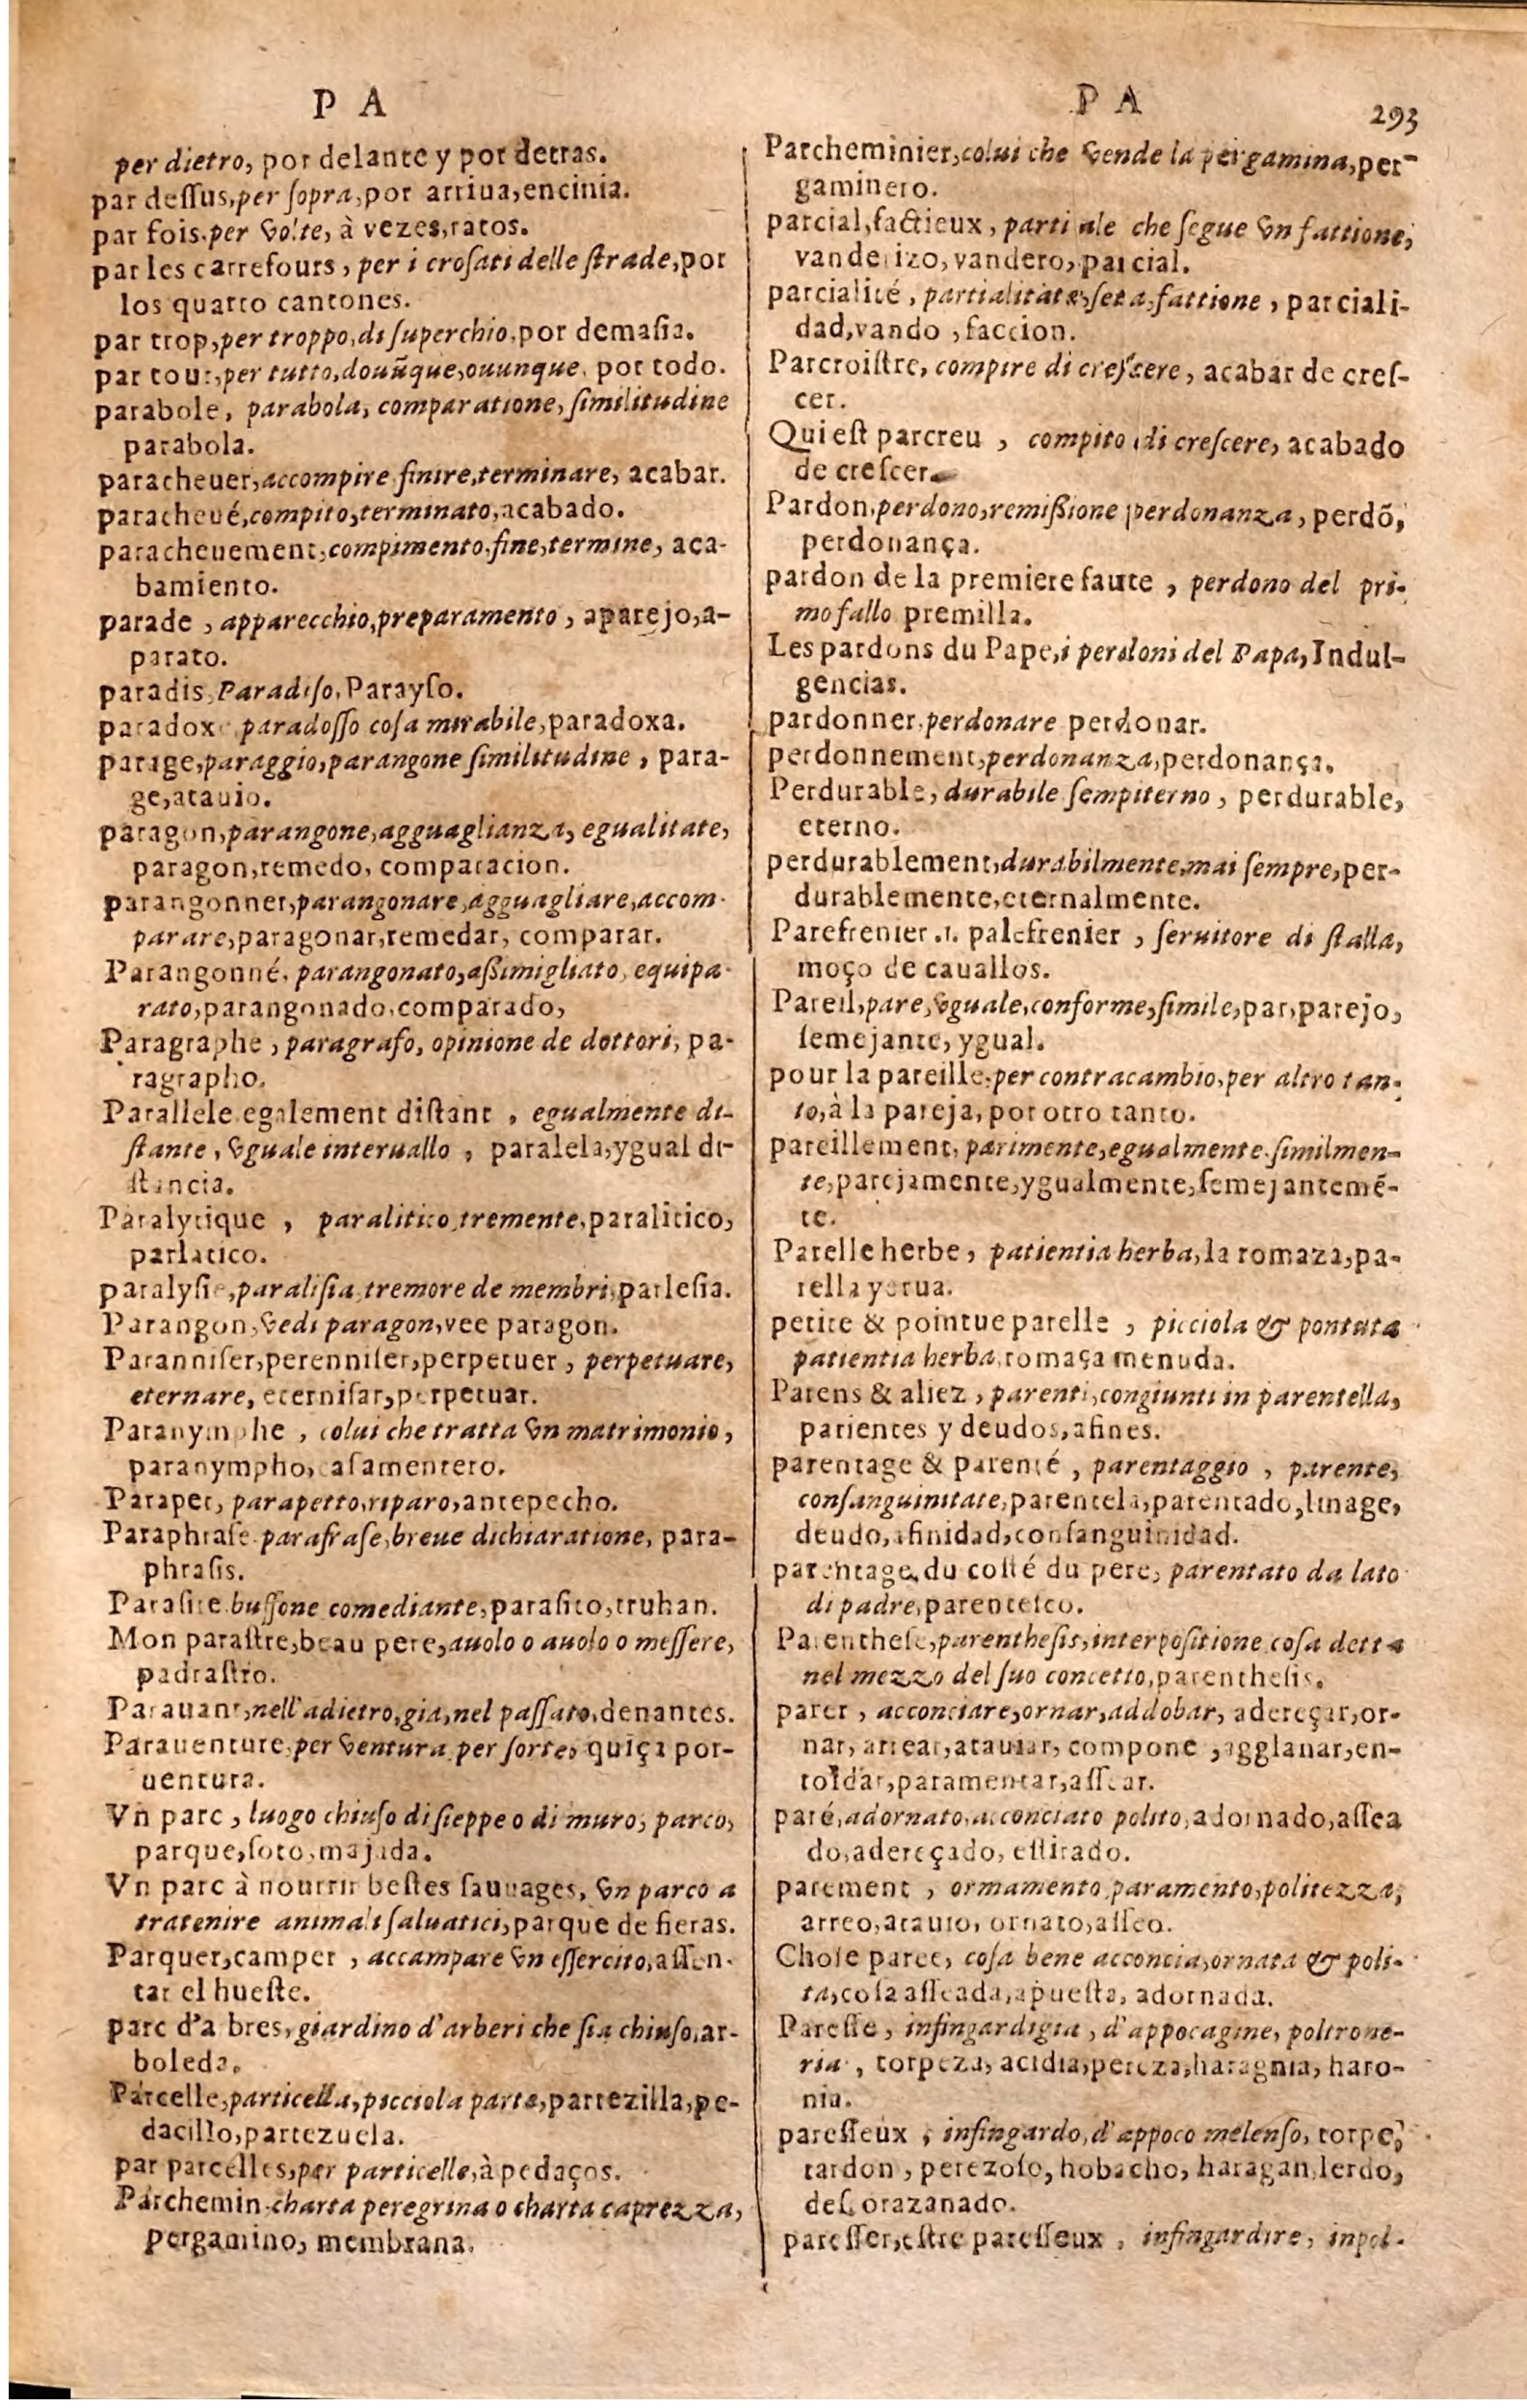 P A
per dietro, por delante y por detras.
par deſſus, per ſopra, por arriua, encinia.
par fois. per volte, à vezes, ratos.
par les carrefours, per i croſati delle ſtrade, por
los quatro cantones.
par trop, per troppo, di ſuperchio, por demaſia.
par tout, per tutto, douũque, ouunque, por todo.
parabole, parabola, comparatione, ſimilitudine
parabola.
paracheuer, accompire finire, terminare, acabar.
paracheué, compito, terminato, acabado.
paracheuement, compimento, fine, termine, aca-
bamiento.
parade, apparecchio, preparamento, aparejo, a-
parato.
paradis, Paradiſo, Parayſo.
paradoxe paradoſſo coſa mirabile, paradoxa.
parage, paraggio, parangone ſimilitudine, para-
ge, atauio.
paragon, parangone, agguaglianza, egualitate,
paragon, remedo, comparacion.
parangonner, parangonare, agguagliare, accom-
parare, paragonar, remedar, comparar.
Parangonné, parangonato, aßimigliato, equipa-
rato, parangonado, comparado,
Paragraphe, paragrafo, opinione de dottori, pa-
ragrapho.
Parallele egalement diſtant, egualmente di-
ſtante, vguale interuallo, paralela, ygual di-
ſtancia.
Paralytique, paralitico, tremente, paralitico,
parlatico.
paralyſie, paraliſia, tremore de membri, parleſia.
Parangon, vedi paragon, vee paragon.
Paranniſer, perenniſer, perpetuer, perpetuare,
eternare, eterniſar, perpetuar.
Paranymphe, colui che tratta vn matrimonio,
paranympho, caſamentero.
Parapet, parapetto, riparo, antepecho.
Paraphraſe. parafraſe, breue dichiaratione, para-
phraſis.
Paraſite. buffone comediante, paraſito, truhan.
Mon paraſtre, beau pere, auolo o auolo o meſſere,
padraſtro.
Parauant, nell'adietro, gia, nel paſſato, denantes.
Parauenture, per ventura per ſorte, quiça por-
uentura.
Vn parc, luogo chiuſo di ſieppe o di muro, parco,
parque, ſoto, majada.
Vn parc à nourrir beſtes ſauuages, vn parco a
tratenire animali ſaluatici, parque de fieras.
Parquer, camper, accampare vn eſſercito, aſſen-
tar el hueſte.
parc d'a bres, giardino d'arberi che ſia chiuſo, ar-
boleda.
Parcelle, particella, picciola parte, partezilla, pe-
dacillo, partezuela.
par parcelles, per particelle, à pedaços.
Parchemin. charta peregrina o charta caprezza,
pergamino, membrana.
P A
293
Parcheminier, colui che vende la pergamina, per-
gaminero.
parcial, factieux, partiale che ſegue vn fattione,
vanderizo, vandero, parcial.
parcialité, partialitate, ſeta, fattione, parciali-
dad, vando, faccion.
Parcroiſtre, compire di creſcere, acabar de creſ-
cer.
Qui eſt parcreu, compito di creſcere, acabado
de creſcer.
Pardon, perdono, remißione perdonanza, perdõ,
perdonança.
pardon de la premiere faute, perdono del pri-
mo fallo premilla.
Les pardons du Pape, i perdoni del Papa, Indul-
gencias.
pardonner, perdonare perdonar.
perdonnement, perdonanza, perdonança.
Perdurable, durabile ſempiterno, perdurable,
eterno.
perdurablement, durabilmente, mai ſempre, per-
durablemente, eternalmente.
Parefrenier .i. palefrenier, ſeruitore di ſtalla,
moço de cauallos.
Pareil, pare, vguale, conforme, ſimile, par, parejo,
ſemejante, ygual.
pour la pareille, per contracambio, per altro tan-
to, à la pareja, por otro tanto.
pareillement, parimente, egualmente. ſimilmen-
te, parejamente, ygualmente, ſemejantemẽ-
te.
Parelle herbe, patientia herba, la romaza, pa-
rella yerua.
petite & pointue parelle, picciola & pontuta
patientia herba, romaça menuda.
Parens & aliez, parenti, congiunti in parentella,
parientes y deudos, afines.
parentage & parenté, parentaggio, parente,
conſanguinitate, parentela, parentado, linage,
deudo, afinidad, conſanguinidad.
parentage du coſté du pere, parentato da lato
di padre, parenteſco.
Parentheſe, parentheſis, interpoſitione coſa detta
nel mezzo del ſuo concetto, parentheſis.
parer, acconciare, ornar, addobar, adereçar, or-
nar, arrear, atauiar, compone, agglanar, en-
toldar, paramentar, aſſear.
paré, adornato, acconciato polito, adornado, aſſea
do, adereçado, eſtirado.
parement, ormamento, paramento, politezza,
arreo, atauio, ornato, aſſeo.
Choſe paree, coſa bene acconcia, ornata & poli-
ta, coſa aſſeada, apueſta, adornada.
Pareſſe, infingardigia, d'appocagine, poltrone-
ria, torpeza, acidia, pereza, haragnia, haro-
nia.
pareſſeux, infingardo, d'appoco melenſo, torpe,
tardon, perezoſo, hobacho, haragan, lerdo,
deſcorazanado.
pareſſer, eſtre pareſſeux, infingardire, inpol-